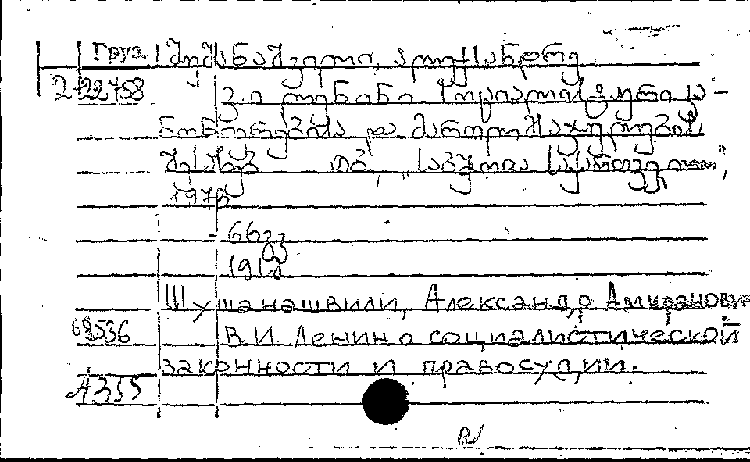 Груз. შუშანაშვილი, ალექსანდრე
2-22458
ვ.ი. ლენინი სოციალისტური კა-
ნონიერებისა და მართლმსაჯულების
შესახებ თბ., „საბჭოთა საქართველო",
1970
66გვ
19სმ
Шушанашвили, Александр Амиранович
68536 В.И. Ленин о социалистической
законности и правосудии.